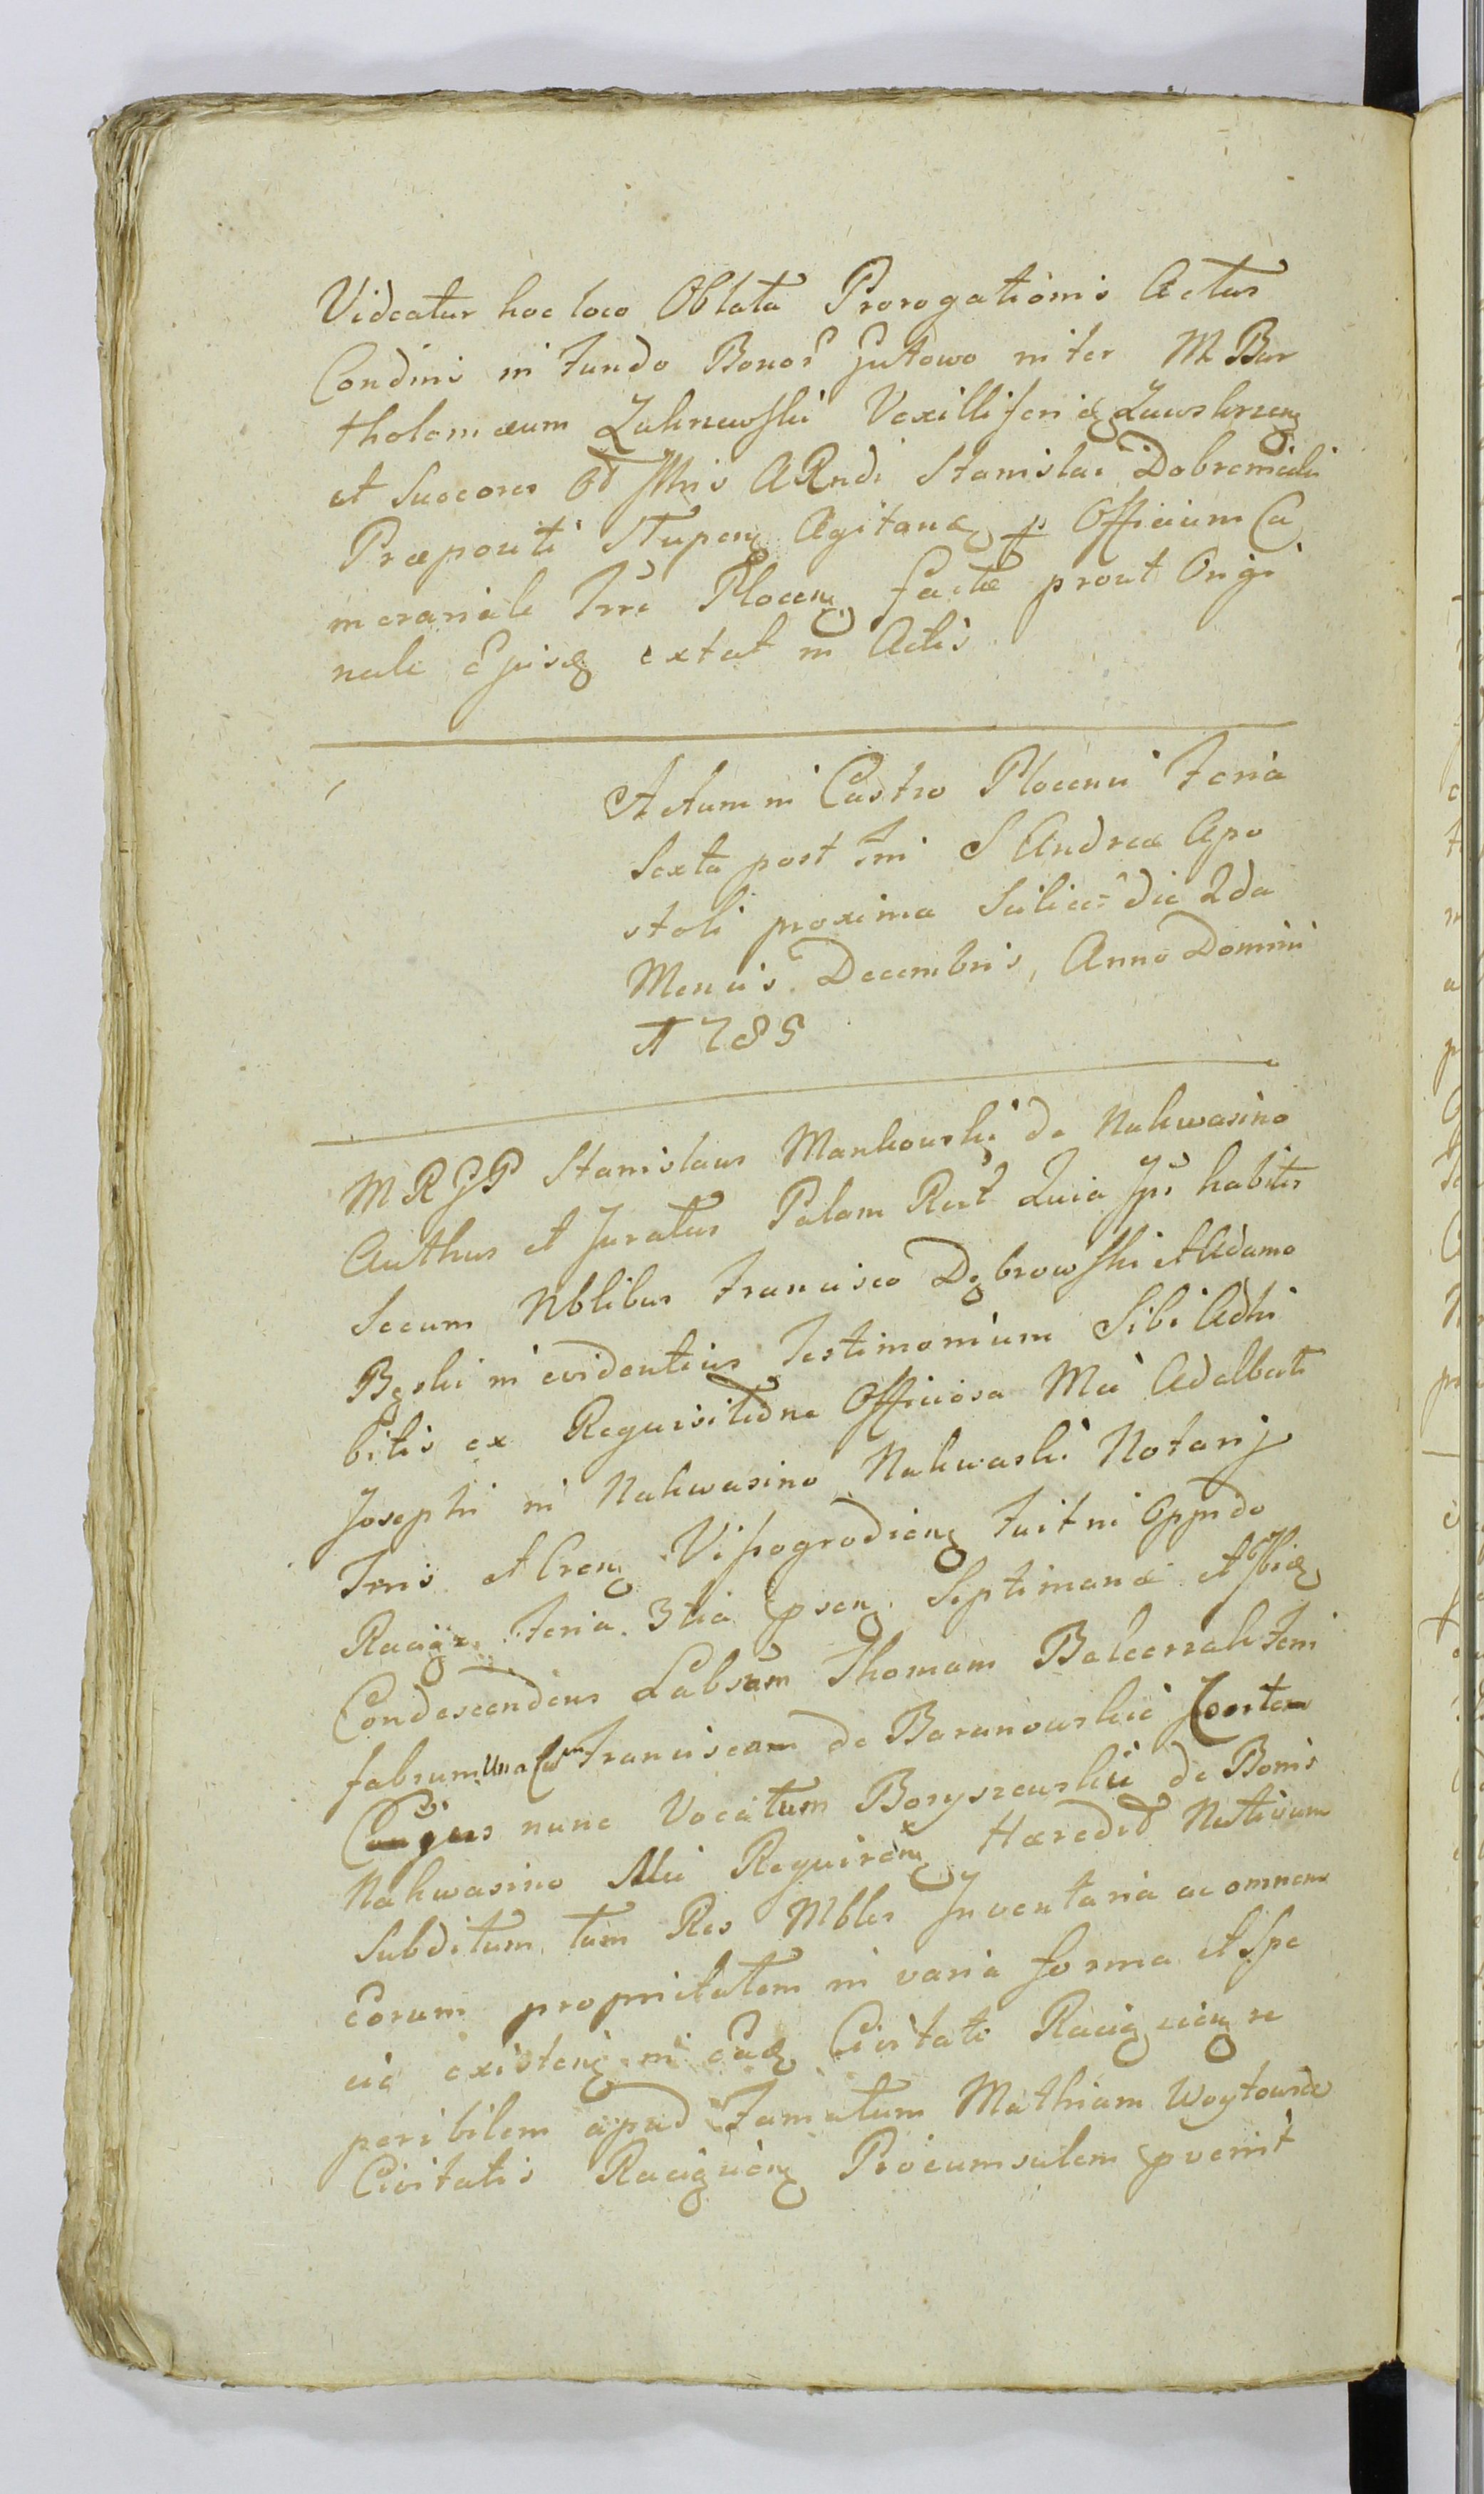 Videatur hoc loco Oblata Prorogationis Actus
Condinis in Fundo Bonor Gutowo inter M Bar
tholomæum Zakrzewski Vexilliferi Zawskrzeng
et Succores Od Illris ARndi Stanislai Dobremieki
Præpositi Stupeng Agitanæ p Officium Ca
merariale Trre Plocen factæ prout Origi
nale Ejus extat in Actis
Actum in Castro Plocensi Feria
Sexta post Fm S Andreæ Apo
stoli proxima Scilicet die 2da
Mensis Decembris, Anno Domini
1785
MRGP Stanislaus Mankowski de Nakwasino
Authus et Juratus Palam Rect Quia Ipse habitis
Secum Nblibus Francisco Dębrowski et Adamo
Bęski in evidentius Testimonium Sibi Adhi
bitis ex Requisitione Officiosa Mci Adalberti
Josephi in Nakwasino Nakwaski Notarij
Trris et Cren Wyssogrodien Fuit in Oppido
Raciąz Feria 3tia psen Septimanæ et Ibidę
Condescendens Labsum Thomam Balcerzak Ferri
fabrum Una Cum Franciscam de Baranowskie Conten
nunc Vocatum Boryszewskii de Bonis
Nakwasino Mci Requiren Hæredit Nativum
Subditum, tum Res Mbles Inventaria ac omnem
Eorum proprietatem in varia forma et Spe
cie existen in Eadę Civitate Raciąz re
peribilem apud Famatum Mathiam Woytowicz
Civitatis Raciąz Procumsulem pvenit